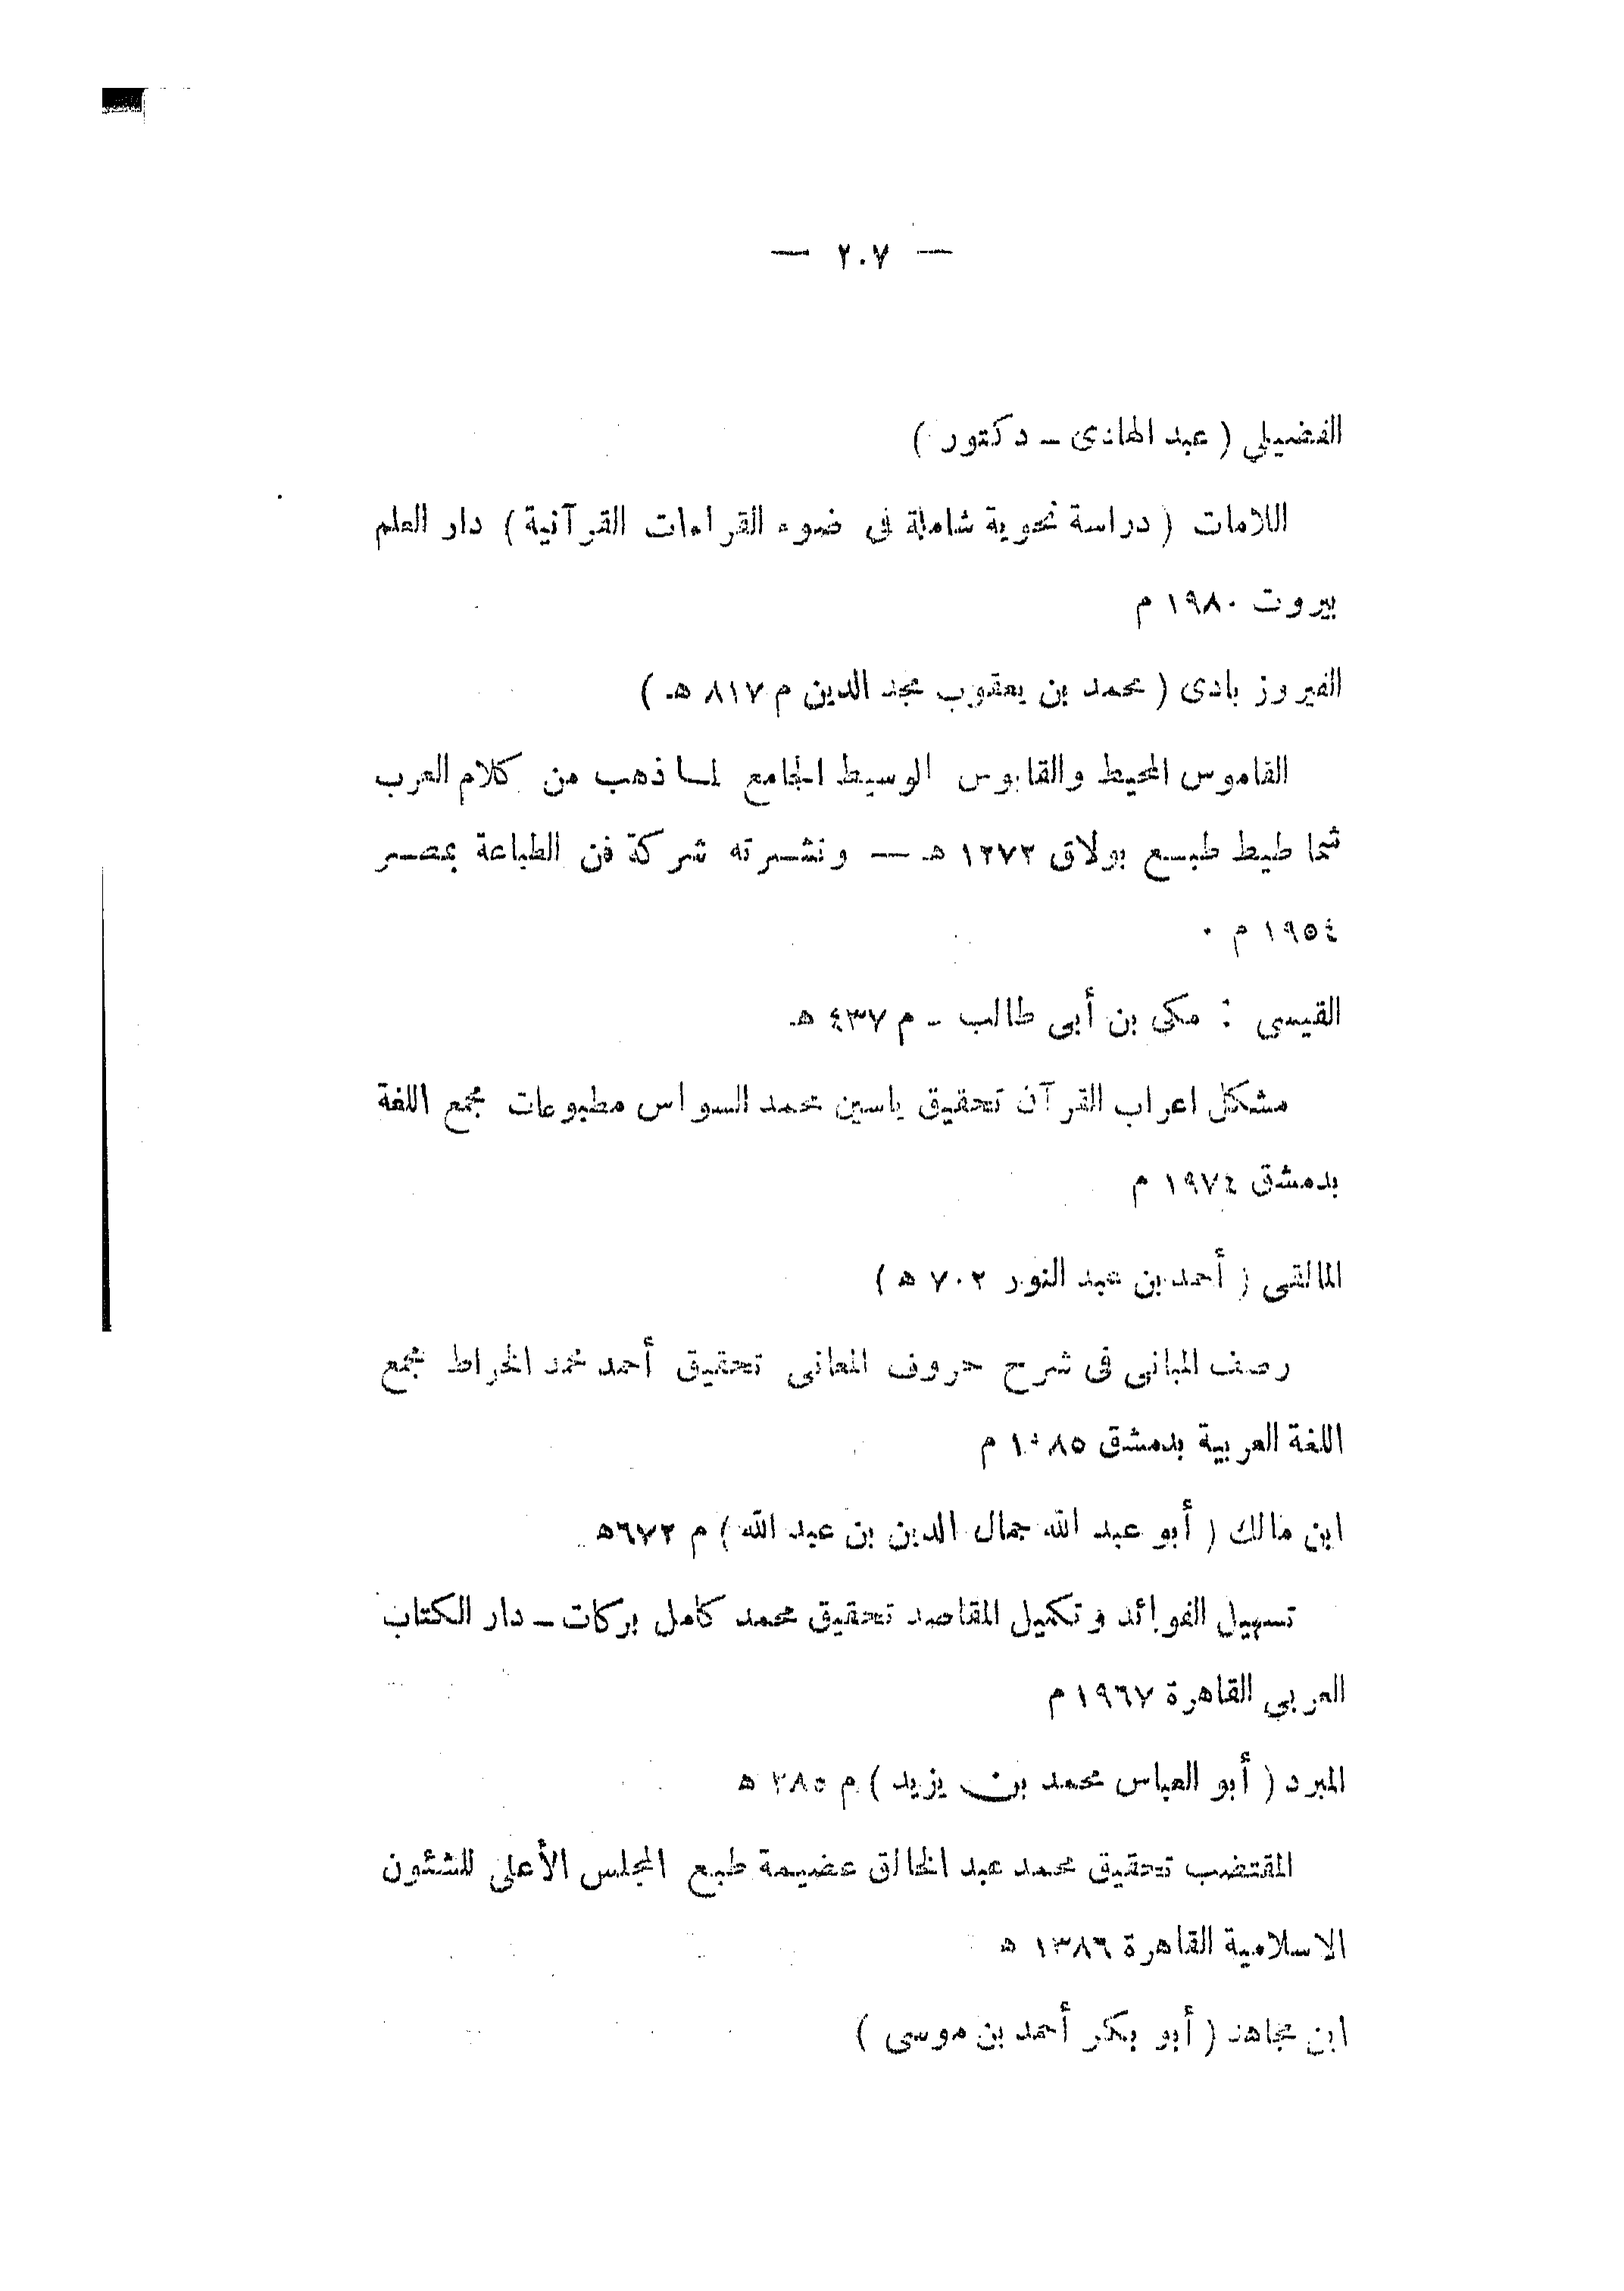 — ٢٠٧ —
الفضيلي ( عبد الهادى ـ دكتور )
اللامات ( دراسة نحوية شاملة فى ضوء القراءات القرآنية ) دار العلم
بيروت ١٩٨٠ م
الفيروز بادى ( محمد بن يعقوب مجد الدين م ٨١٧ هـ )
القاموس المحيط والقابوس الوسيط الجامع لما ذهب من كلام العرب
شماطيط طبع بولاق ١٢٧٢ هـ — ونشرته شركة فن الطباعة بمصر
١٩٥٤ م ٠
القيسى : مكى بن أبى طالب ـ م ٤٣٧ هـ
مشكل اعراب القرآن تحقيق ياسين محمد السواس مطبوعات مجمع اللغة
بدمشق ١٩٧٤ م
المالقى ( أحمد بن عبد النور ٧٠٢ هـ )
رصف المبانى فى شرح حروف المعانى تحقيق أحمد محمد الخراط مجمع
اللغة العربية بدمشق م
ابن مالك ( أبو عبد الله جمال الدين بن عبد الله ) م ٦٧٢هـ
تسهيل الفوائد وتكميل المقاصد تحقيق محمد كامل بركات ـ دار الكتاب
العربى القاهرة ١٩٦٧ م
المبرد ( أبو العباس محمد بن يزيد ) م ٢٨٥ هـ
المقتضب تحقيق محمد عبد الخالق عضيمة طبع المجلس الأعلى للشئون
الاسلامية القاهرة ١٣٨٦ هـ
ابن مجاهد ( أبو بكر أحمد بن موسى )